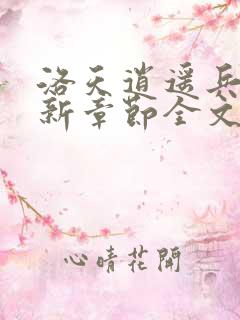 洛天逍遥兵
新章节全文
心晴花開